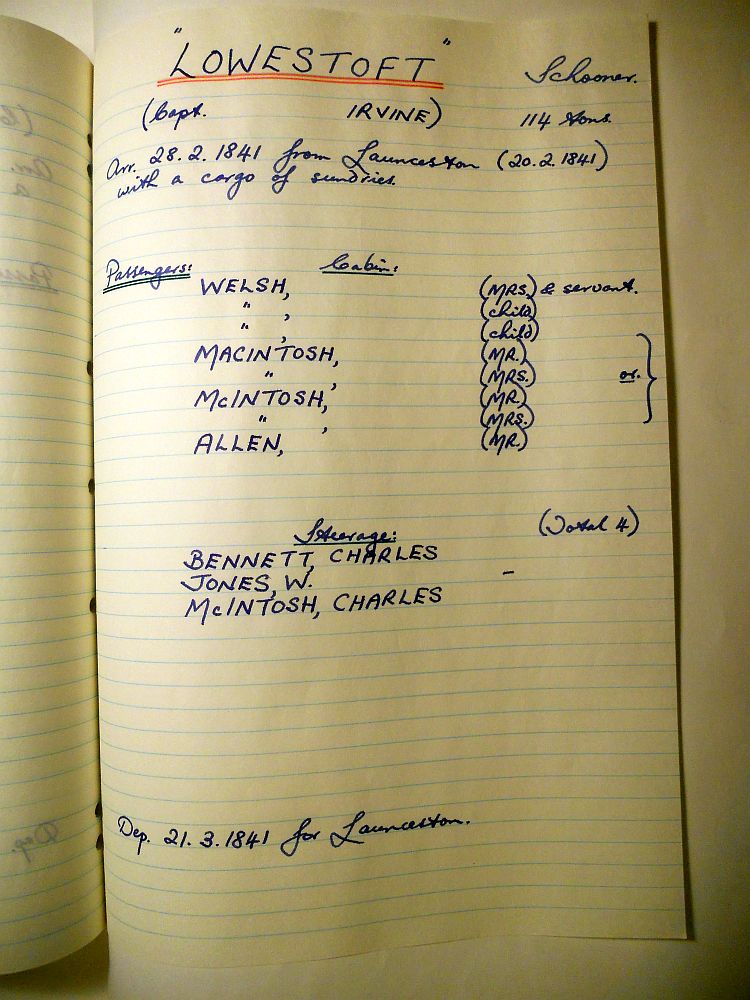 "LOWESTOFT" Schooner.
(Capt. IRVINE) 114 tons.
Arr. 28.2.1841 from Launceston (20.2.1841)
with a cargo of sundries.
Passengers: Cabin:
WELSH, (MRS.) & servant.
" , (child)
" , (child)
MACINTOSH, (MR.)
" , (MRS.) or.
McINTOSH, (MR.)
" , (MRS.)
ALLEN, (MR.)
Steerage: (Total 4)
BENNETT, CHARLES
JONES, W. –
McINTOSH, CHARLES
Dep. 21.3.1841 for Launceston.